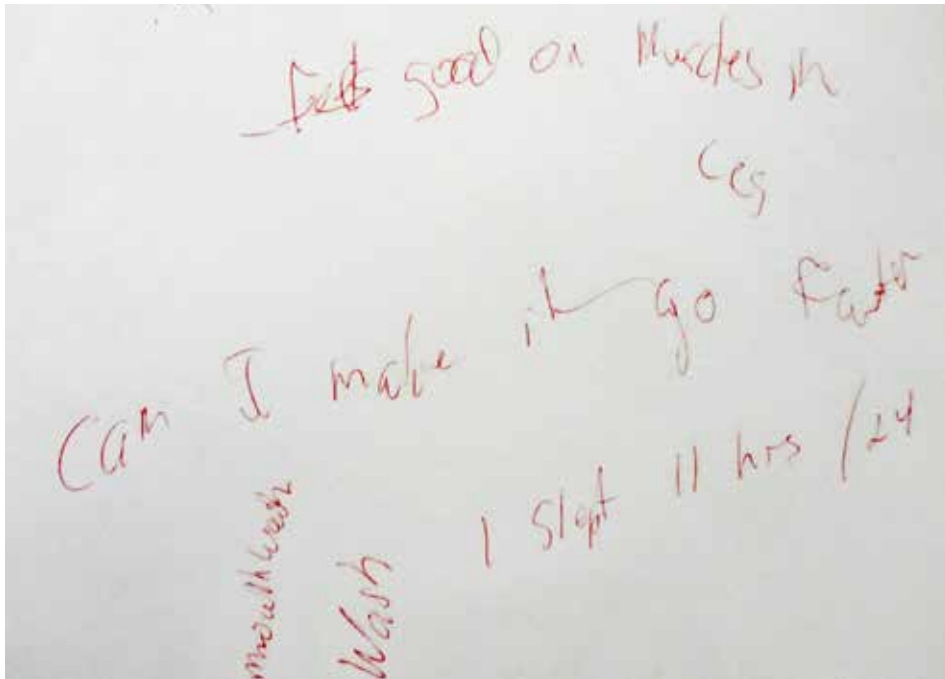 Feels good on Muscles in
Can I make it go Faster
I Slept 11 hrs / 24
mouthwash
Wash